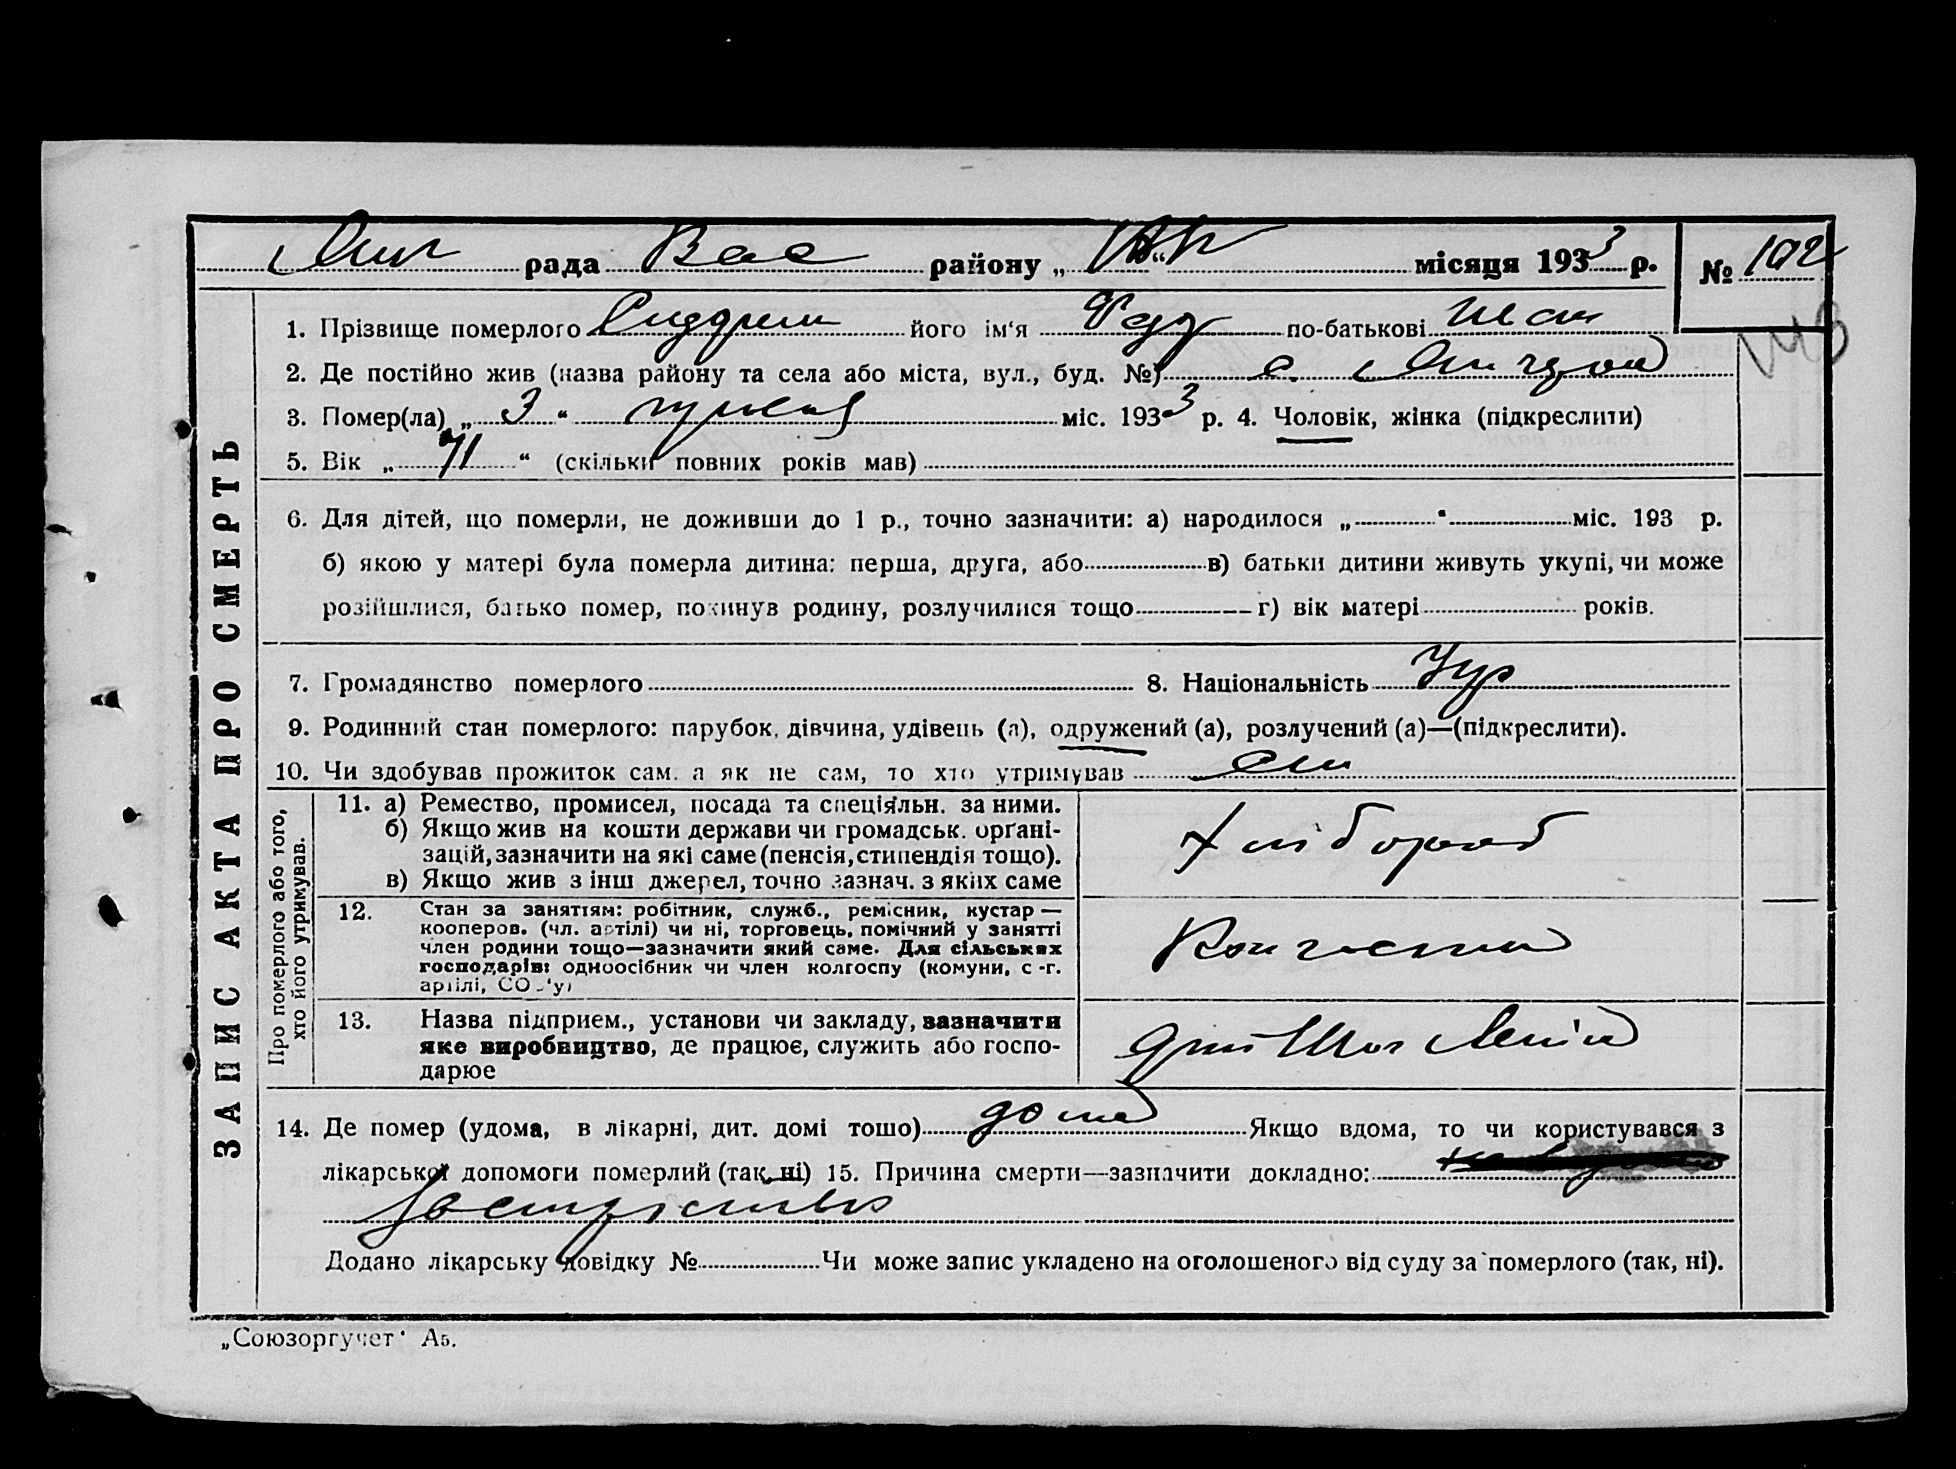 рада Вас району „ “ місяця 1933 р. № 102
1. Прізвище померлого його ім‘я по-батькові
2. Де постійно жив (назва району та села або міста, вул., буд. №) с.
3. Помер(ла) „ 3 “ міс. 1933 р. 4. Чоловік, жінка (підкреслити)
5. Вік „ 71 “ (скільки повних років мав)
6. Для дітей, що померли, не доживши до 1 р., точно зазначити: а) народилося „ “ міс. 193 р.
б) якою у матері була померла дитина: перша, друга, або в) батьки дитини живуть укупі, чи може
розійшлися, батько помер, покинув родину, розлучилися тощо г) вік матері років.
7. Громадянство померлого 8. Національність Укр
9. Родинний стан померлого: парубок, дівчина, удівець (а), одружений (а), розлучений (а)—(підкреслити).
10. Чи здобував прожиток сам, а як не сам, то хто утримував сам
Про померлого або того,
хто його утримував.
11. а) Ремество, промисел, посада та спеціяльн. за ними.
б) Якщо жив на кошти держави чи громадськ. орґані-
зацій, зазначити на які саме (пенсія, стипендія тощо).
в) Якщо жив з інш джерел, точно зазнач. з яких саме
хлібороб
12. Стан за заняттям: робітник, служб., ремісник, кустар —
кооперов. (чл. артілі) чи ні, торговець, помічний у занятті
член родини тощо—зазначити який саме. Для сільських
господарів: одноосібник чи член колгоспу (комуни, с.-г.
артілі, СОЗ‘у)
13. Назва підприєм., установи чи закладу, зазначити
яке виробництво, де працює, служить або госпо-
дарює
14. Де помер (удома, в лікарні, дит. домі тощо) дома Якщо вдома, то чи користувався з
лікарської допомоги померлий (так, ні) 15. Причина смерти—зазначити докладно:
Додано лікарську довідку № Чи може запис укладено на оголошеного від суду за померлого (так, ні).
ЗАПИС АКТА ПРО СМЕРТЬ
„Союзоргучет“ А5.